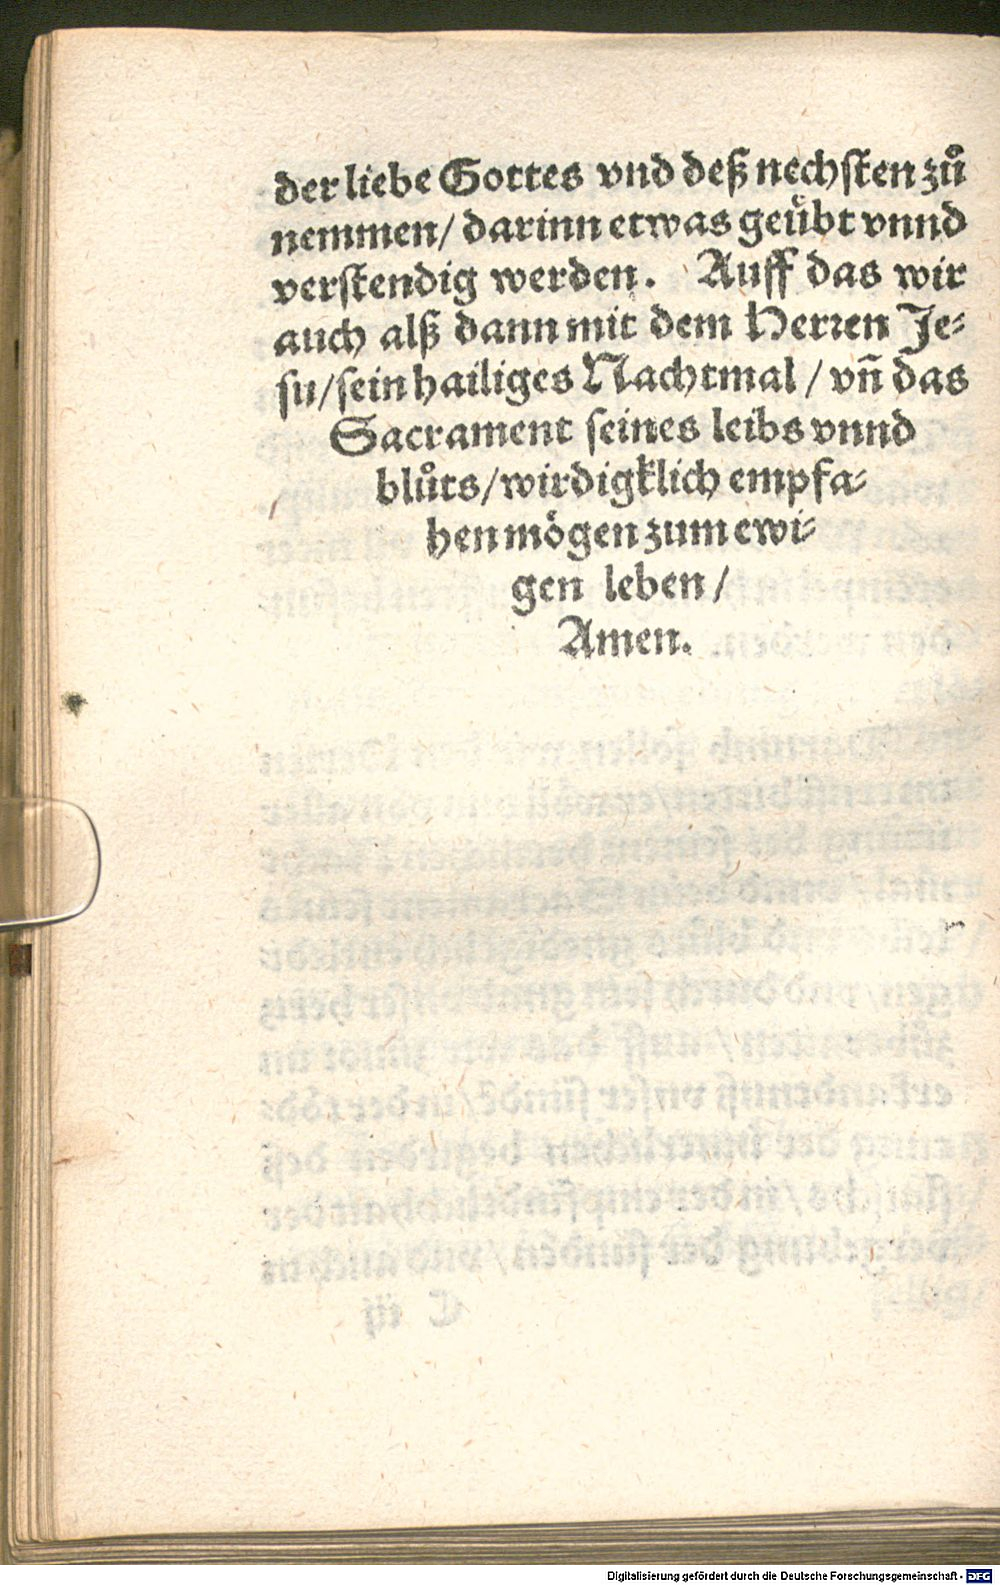 der liebe Gottes vnd deß nechsten zů
nemmen/ darinn etwas geübt vnnd
verstendig werden. Auff das wir
auch alß dann mit dem Herren Je-
su/ sein hailiges Nachtmal / vn̄ das
Sacrament seines leibs vnnd
blůts/ wirdigklich empfa-
hen mögen zum ewi-
gen leben /
Amen.
Digitalisierung gefördert durch die Deutsche Forschungsgemeinschaft - DFG